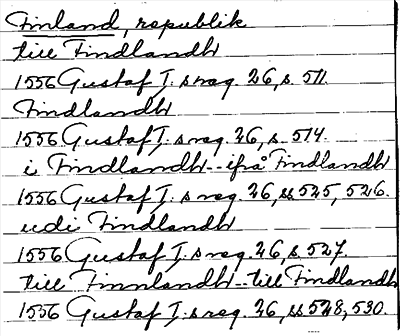 Finland, republik
till Findlandh
1556 Gustaf I:s reg. 26, s. 511.
Findlandh
1556 Gustaf I:s reg. 26, s. 514.
i Findlandh--ifrå Findlandh
1556 Gustaf I:s reg. 26, ss 525, 526.
udi Findlandh
1556 Gustaf I:s reg. 26, s. 527.
till Finnlandh--till Findlandh
1556 Gustaf I:s reg. 26, ss 528, 530.